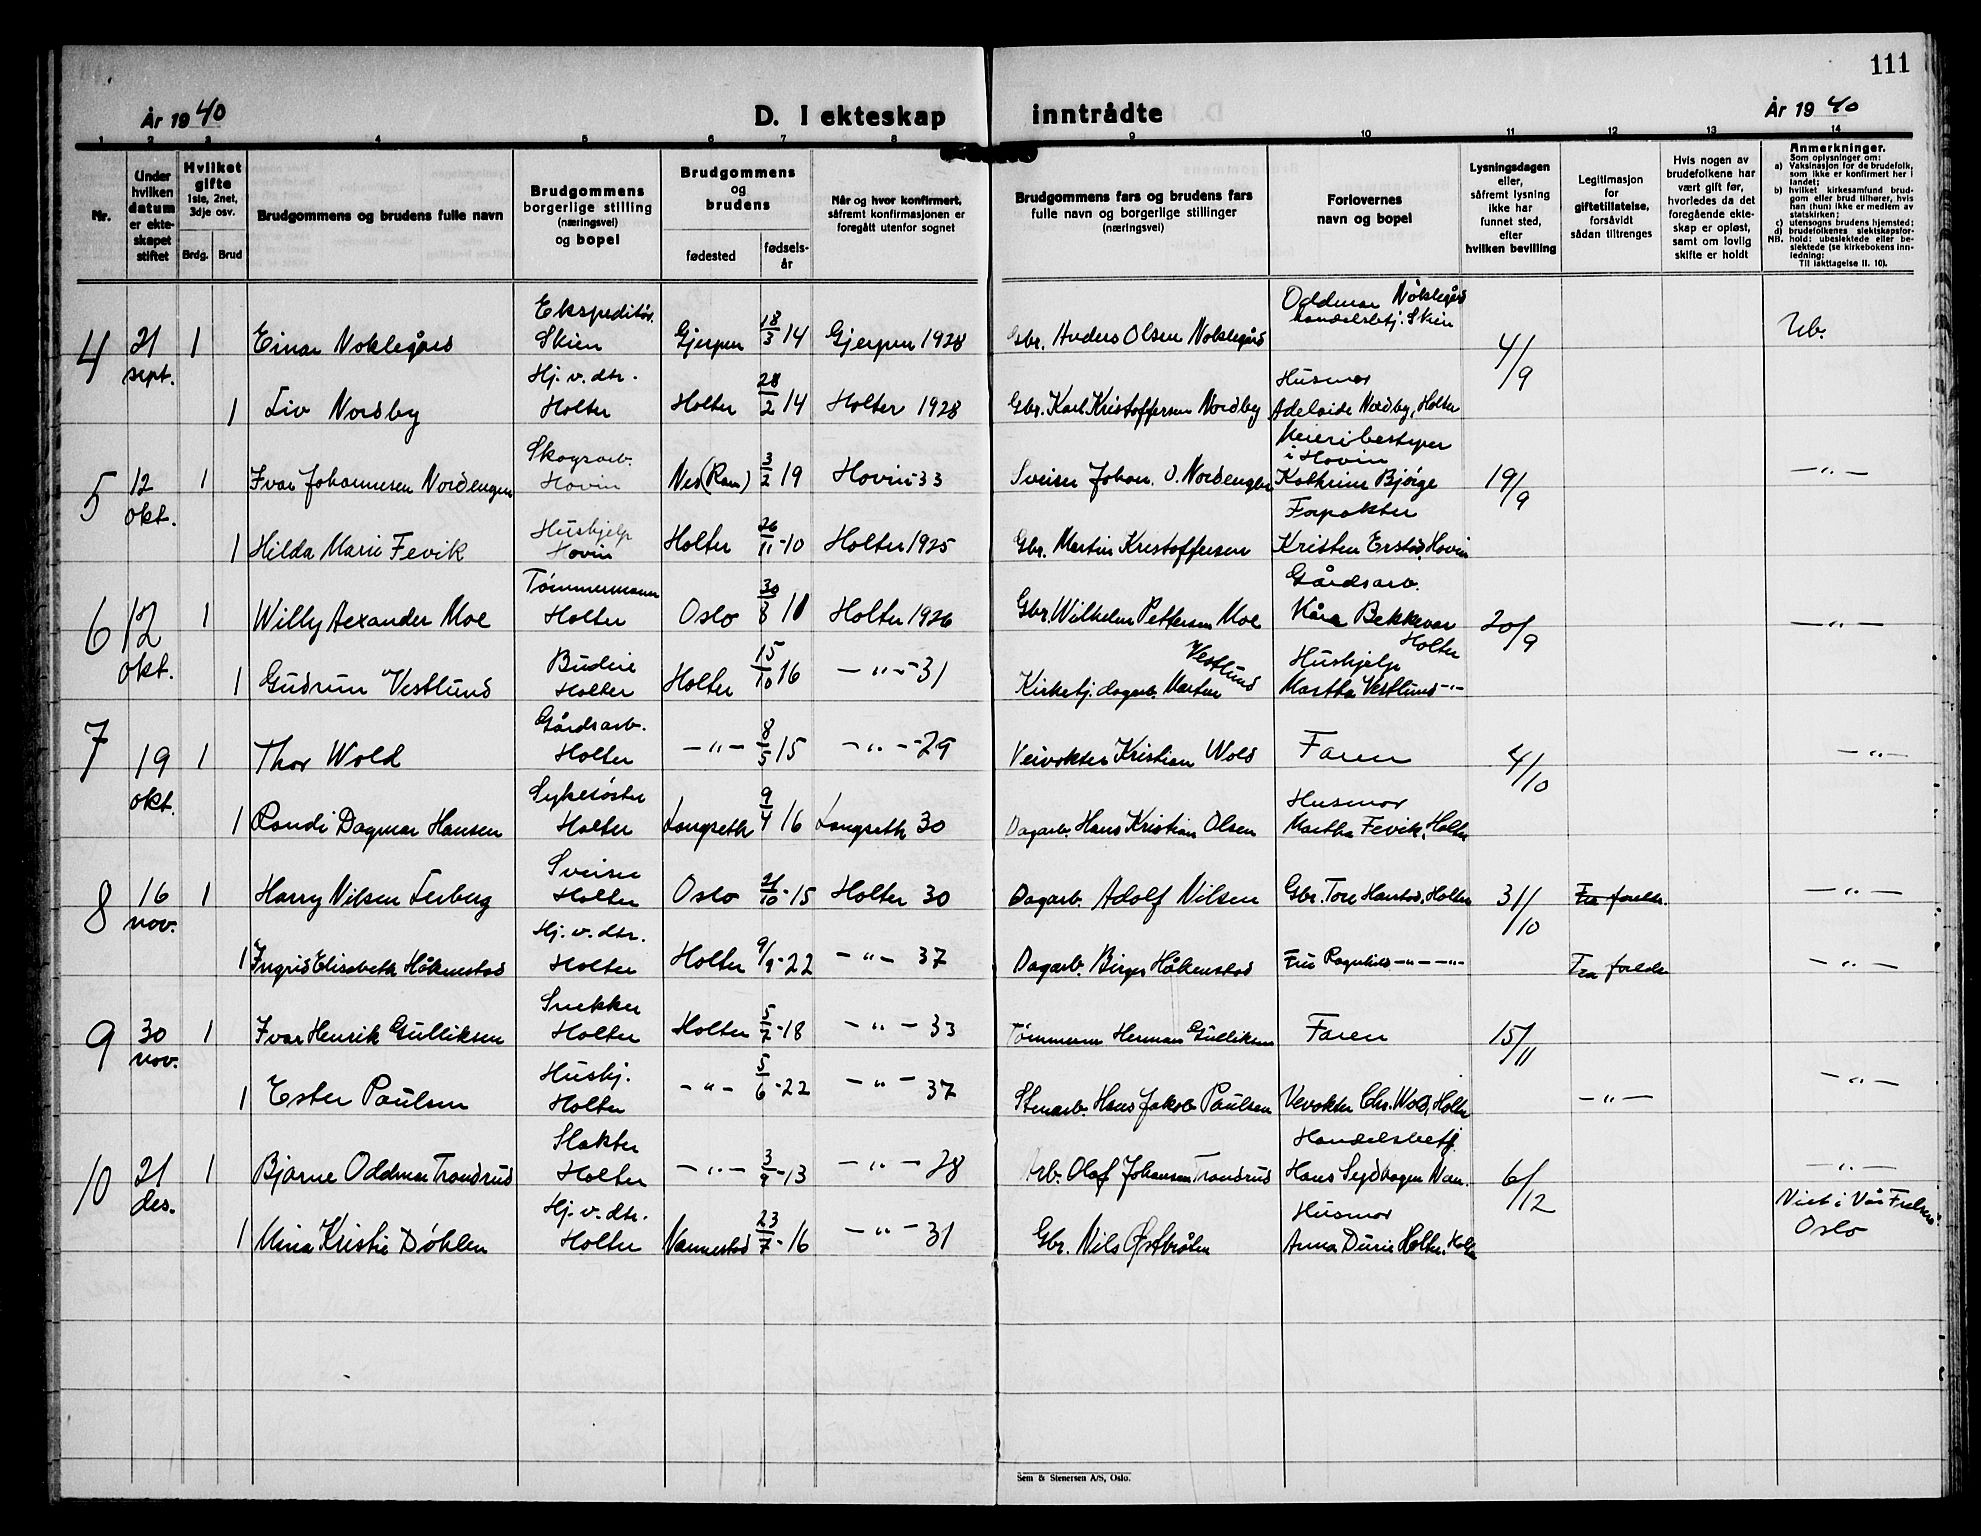 111
År 1940
D. I ekteskap inntrådte
År 1940
1 2 3 4 5 6 7 8 9 10 11 12 13 14
Nr.
Under hvilken datum er ekteskapet stiftet
Hvilket gifte 1ste, 2net, 3dje osv.
Brdg. Brud
Brudgommens og brudens fulle navn
Brudgommens borgerlige stilling (næringsvei) og bopel
Brudgommens og brudens
fødested
fødselsår
Når og hvor konfirmert, såfremt konfirmasjonen er foregått utenfor sognet
Brudgommens fars og brudens fars fulle navn og borgerlige stillinger (næringsvei)
Forlovernes navn og bopel
Lysningsdagen eller, såfremt lysning ikke har funnet sted, efter hvilken bevilling
Legitimasjon for giftetillatelse, forsåvidt sådan tiltrenges
Hvis nogen av brudefolkene har vært gift før, hvorledes da det foregående ekteskap er opløst, samt om lovlig skifte er holdt
Anmerkninger.
Som oplysninger om:
a) Vaksinasjon for de brudefolk, som ikke er konfirmert her i landet;
b) hvilket kirkesamfund brudgom eller brud tilhører, hvis han (hun) ikke er medlem av statskirken;
c) utensogns brudens hjemsted;
d) brudefolkenes slektskapsforhold: ubeslektede eller beslektede (se kirkebokens innledning:
NB. Til iakttagelse II. 10).
4 21 sept. 1 Einar Noklegård Ekspeditør. Skien Gjerpen 18/3 14 Gjerpen 1928 Gbr. Anders Olsen Noklegård Oddmar Nøklegård handelsbetj. Skien 4/9 Ub.
1 Liv Nordby Hj. v. dtr. Holter Holter 28/2 14 Holter 1928 Gbr. Karl Kristoffersen Nordby Husmor Adelaide Nordby, Holter
5 12 okt. 1 Ivar Johannesen Nordengen Skogsarb. Hovin Nes (Rom) 3/2 19 Hovin -33 Sveiser Johan. O. Nordengen Meieribestyrer i Hovin Kathrine Bjørge 19/9 -"-
1 Hilda Marie Fevik Hushjelp Hovin Holter 26/11 -10 Holter 1925 Gbr. Martin Kristoffersen Forpakter Kristen Erstad, Hovin
6 12 okt. 1 Willy Aexander Moe Tømmermann Holter Oslo 30/8 11 Holter 1926 Gbr. Wilhelm Pettersen Moe Gårdsarb. Kåre Bekkevar Holter 20/9 -"-
1 Gudrun Vestlund Budeie Holter Holter 15/10 16 -"- -31 Kirketj. dagarb. Morten Vestlund Hushjelp Martha Vestlund -"-
7 19 okt. 1 Thor Wold Gårdsarb. Holter -"- 8/5 15 -"- -29 Veivokter Kristian Wold Faren 4/10 -"-
1 Randi Dagmar Hansen Sykesøster Holter Langseth 9/4 16 Langseth 30 Dagarb. Hans Kristian Olsen Husmor Martha Fevik, Holter
8 16 nov. 1 Harry Nilsen Sveiser Holter Oslo 21/10 -15 Holter 30 Dagarb. Adolf Nilsen Gbr. Tore Harstad, Holter 31/10 Fra foreldr. -"-
1 Ingrid Elisabeth Håkenstad Hj. v. dtr. Holter Holter 9/9 -22 -"- 37 Dagarb. Birger Håkenstad Fru Ragnhild -"- -"- Fra foreldr -"-
9 30 nov. 1 Ivar Henrik Gulliksen Snekker Holter Holter 5/2 -18 -"- 33 Tømmerm Herman Gulliksen Faren 15/11
1 Ester Paulsen Hushj. Holter -"- 5/6 -22 -"- 37 Stenarb. Hans Jakob Paulsen Veivokter Chr. Wold, Holter -"- -"-
10 21 des. 1 Bjarne Oddmar Trondrud Slakter Holter -"- 3/9 -13 -"- 28 Arb. Olaf Johansen Trondrud Handelsbetj. Hans 6/12 -"-
1 Mina Kristie Døhlen Hj. v. dtr. Holter Nannestad 23/7 -16 -"- 31 Gbr. Nils Østbråten Husmor Anna Holter, Holter Viet i Vår Frelsers Oslo
Sem & Stenersen A/S, Oslo.